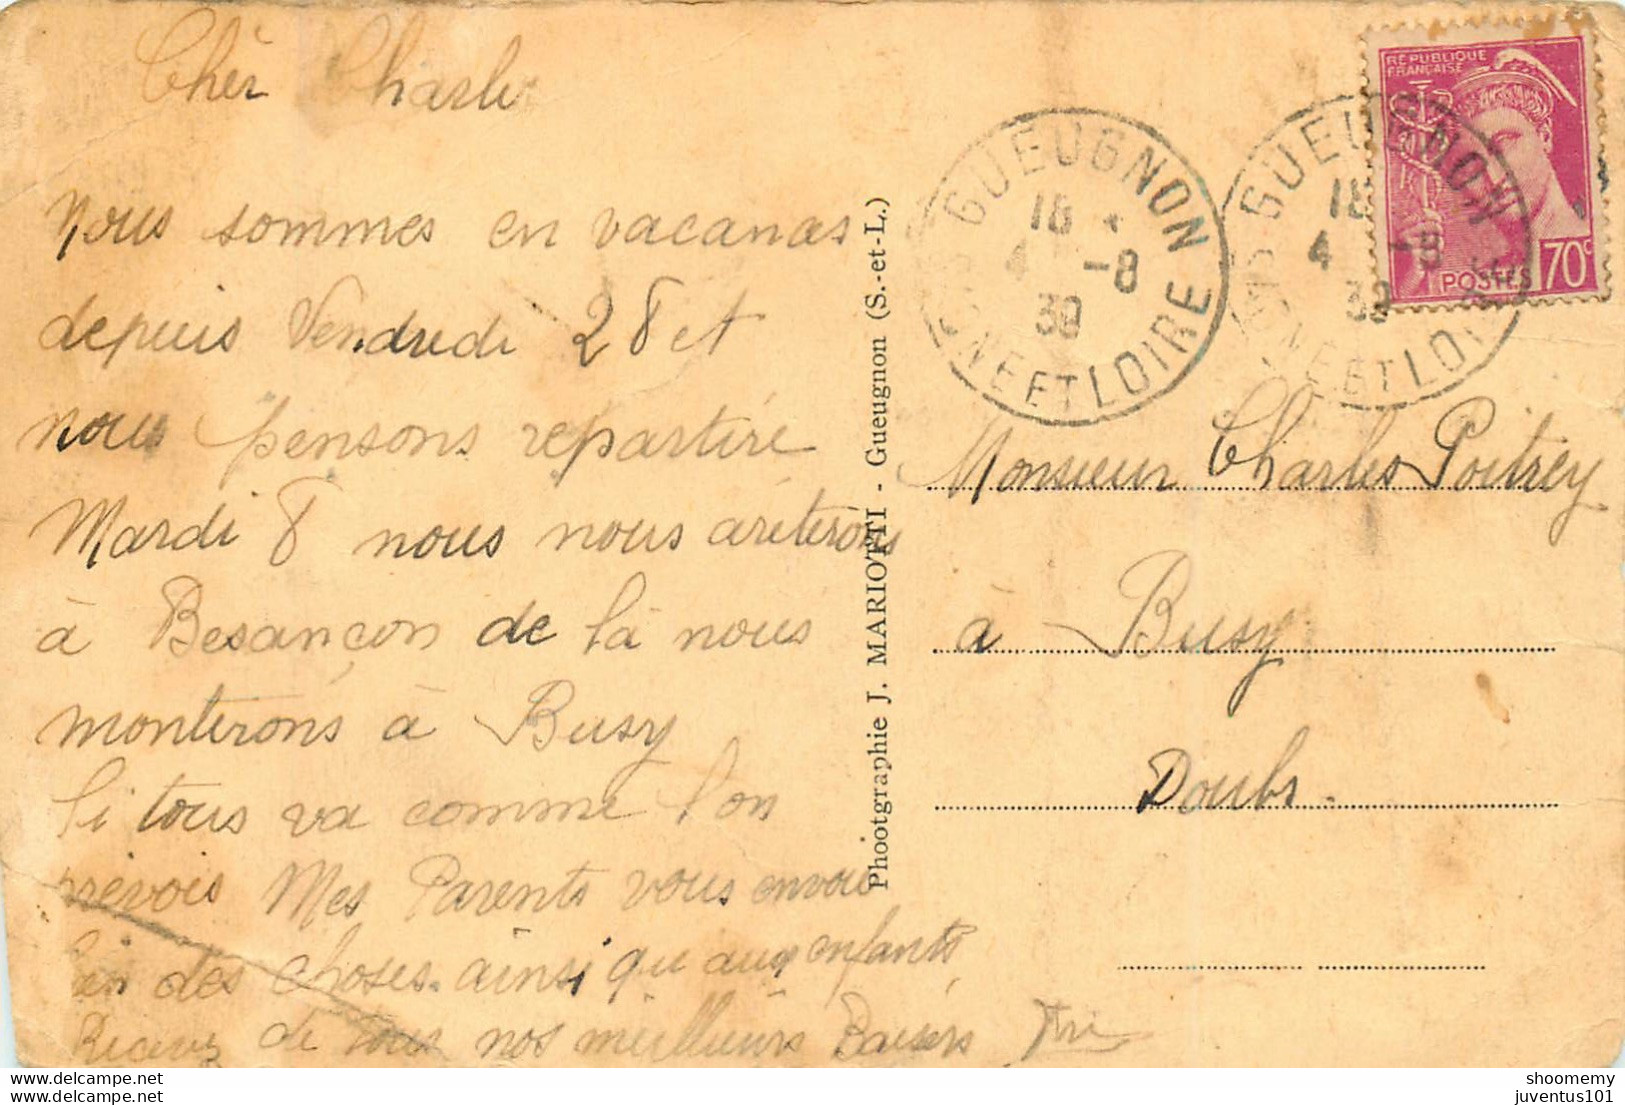 Chèr Charle
Nous sommes en vacanas
depuis Vendredi 28 et
nous pensons repartire
Mardi 8 nous nous arêterons
à Besançon de là nous
monterons à Busy
Si tous va comme l'on
prévois Mes Parents vous envoi
bien des choses ainsi qu aux enfants
Recevez de tous nos meilleurs Baisers
Phootgraphie J. MARIOTTI - Gueugnon (S.-et-L.)
GUEUGNON
18 *
4 -8
39
SAONE ET LOIRE
GUEUGNON
18
4 -8
39
SAONE ET LOIRE
RÉPUBLIQUE
FRANÇAISE
POSTES 70c
Monsieur Charles Poitrey
à Busy
Doubs.
shoomemy
juventus101